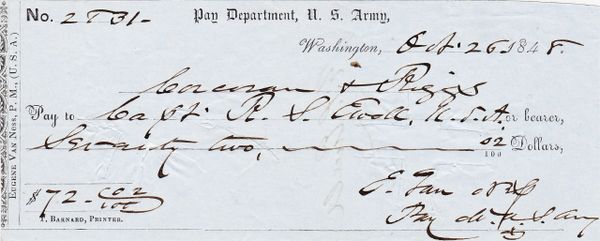 No. 2531- Pay Department, U. S. Army,
Washington, Oct. 26 1848.
Corcoran & Riggs
Pay to Capt. R. S. Ewell, U.S.A. or bearer,
Seventy two, 02/100 Dollars,
$72-002/100
E. Van Ness
Pay Mr. U.S. Army
T. BARNARD, PRINTER.
EUGENE VAN NESS, P. M., (U. S. A.)